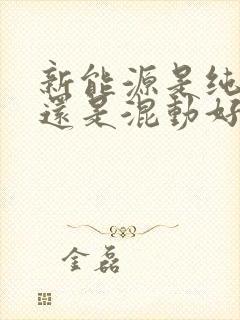 新能源是纯
還是混動好
金磊